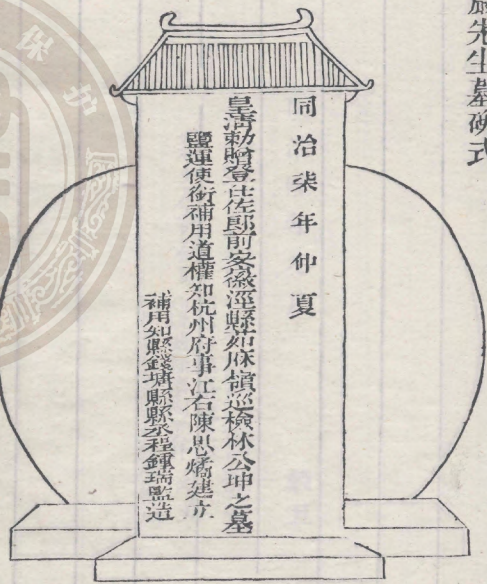 先生墓碑式
同治柒年仲夏
皇清勅贈登仕佐郎前安徽涇縣茹麻嶺巡檢林公坤之墓
鹽運使銜補用道權知杭州府事江右陳思燏建立
補用知縣錢塘縣縣丞程鍾瑞監造
保护